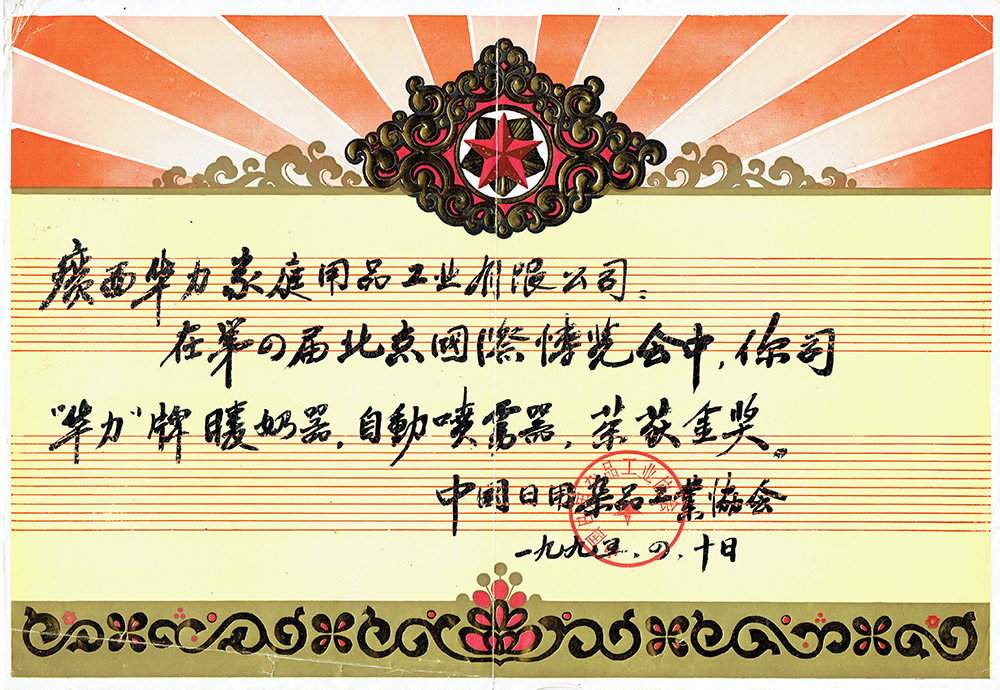 廣西华力家庭用品工业有限公司：
在第四届北京國際博览会中，你司
“华力”牌暖奶器，自動喷雾器，荣获金奖。
中国日用杂品工業協会
一九九五.四.十日
中国日用杂品工业协会